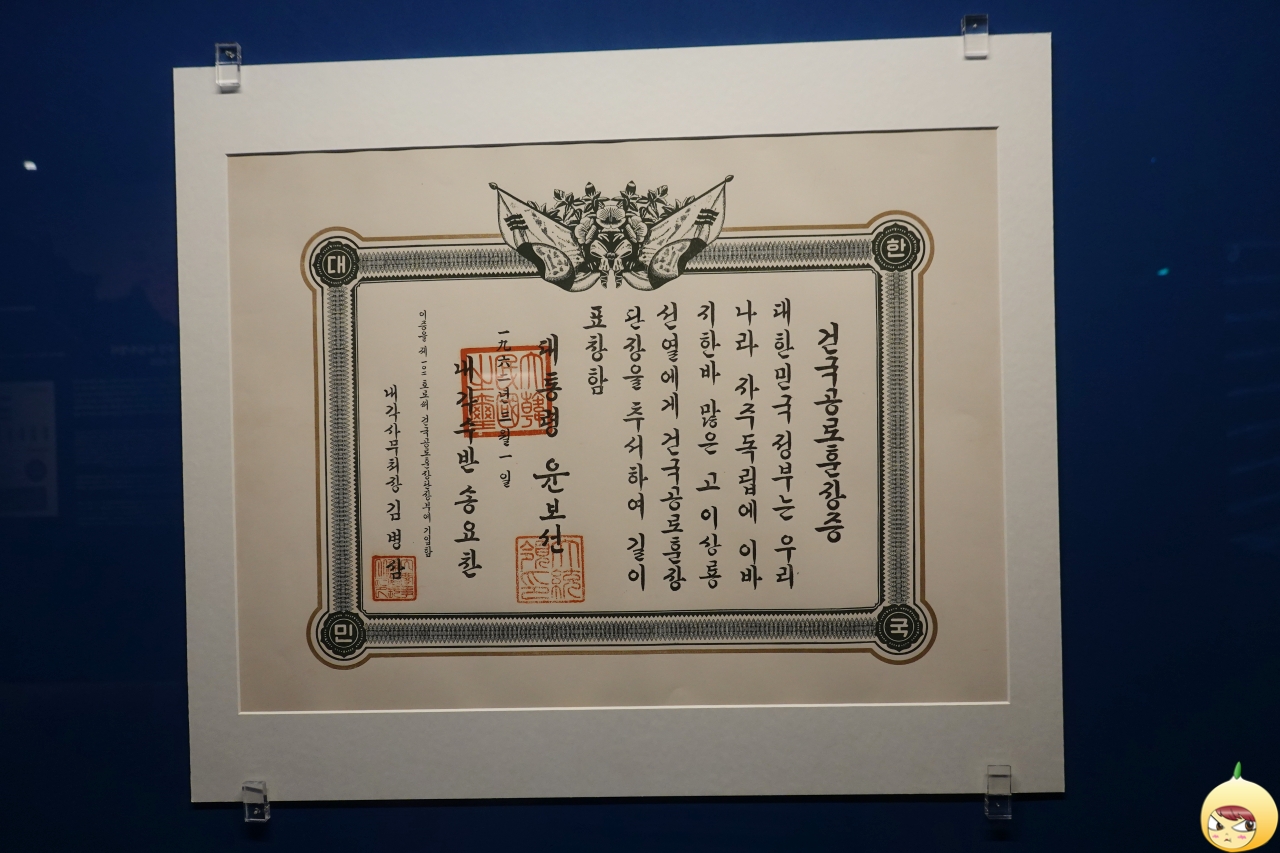 대 한
민 국
건국공로훈장증
대한민국 정부는 우리
나라 자주독립에 이바
지한바 많은 고 이상룡
선열에게 건국공로훈장
단장을 추서하여 길이
표창함
대통령 윤보선
大統領印
一九六二년三월一일
大韓民國之璽
내각수반 송요찬
이증을 제 호로써 건국공로훈장단장부에 기입함
내각사무처장 김병삼